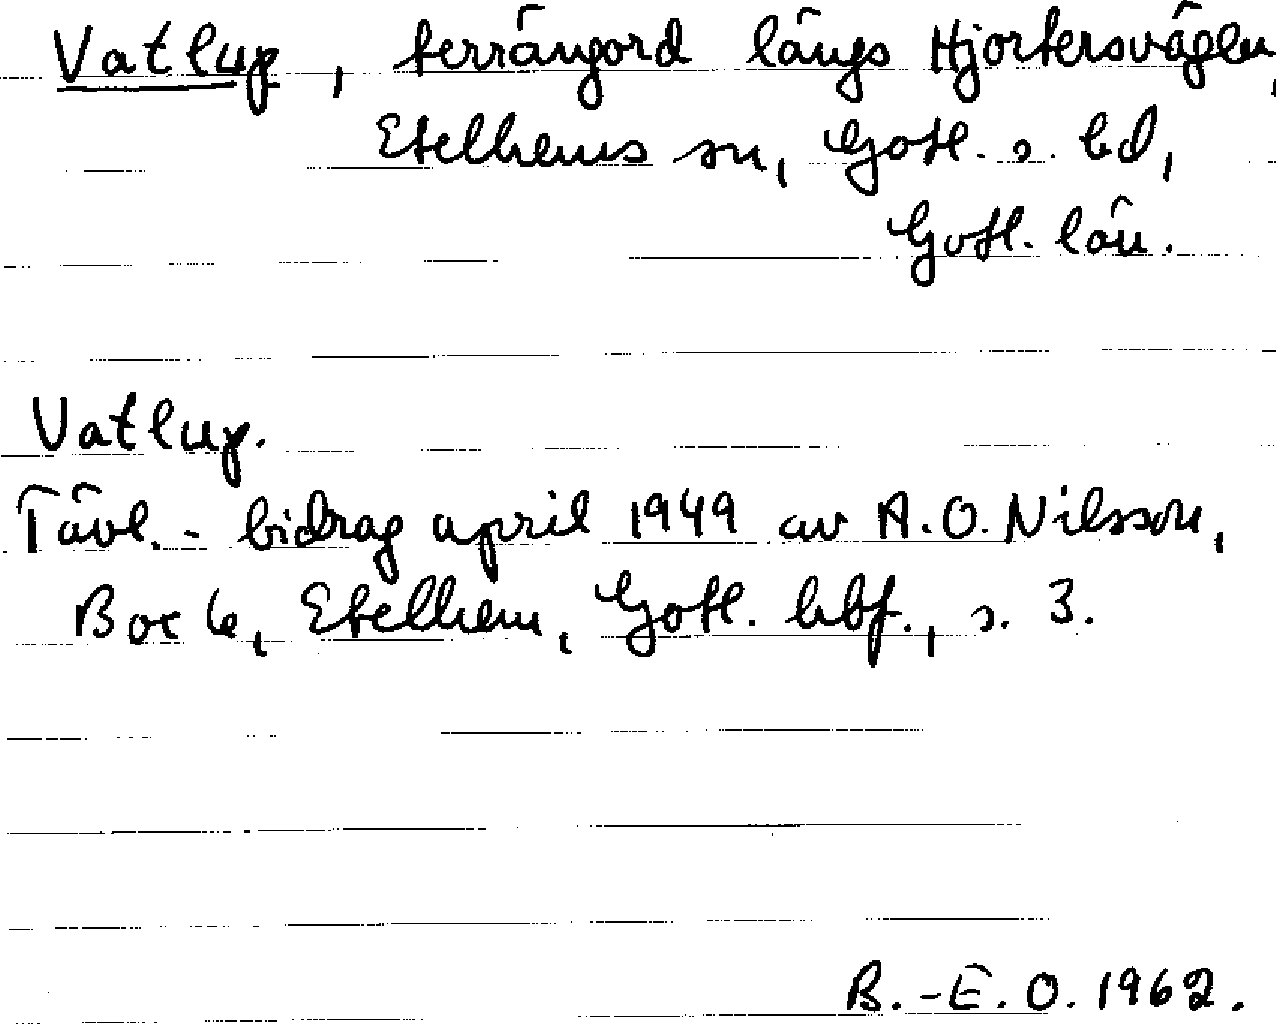 Vatlup, terrängord längs Hjortersvägen,
Etelhems sn, Gotl. s. hd,
Gotl. län.
Vatlup.
Tävl.-bidrag april 1949 av A.O. Nilsson,
Etelhem, Gotl. hbf., s. 3.
B.-E.O. 1962.